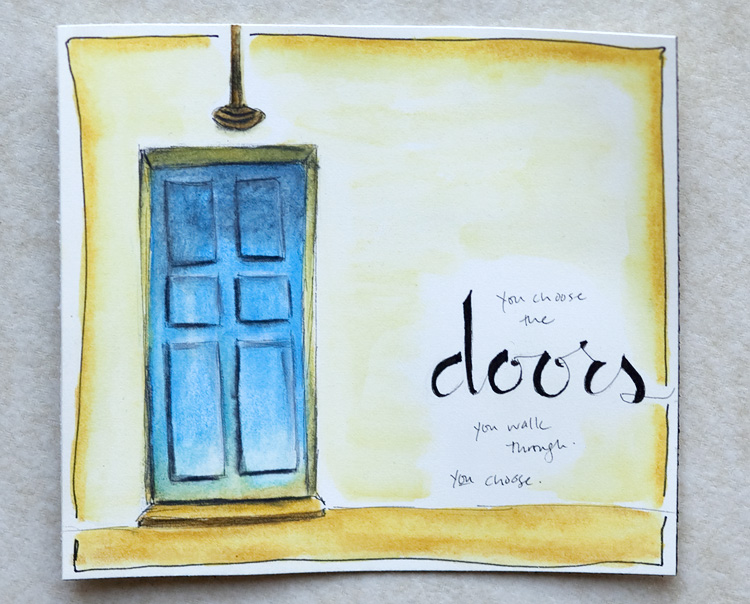 You choose
the
doors
you walk
through.
You choose.